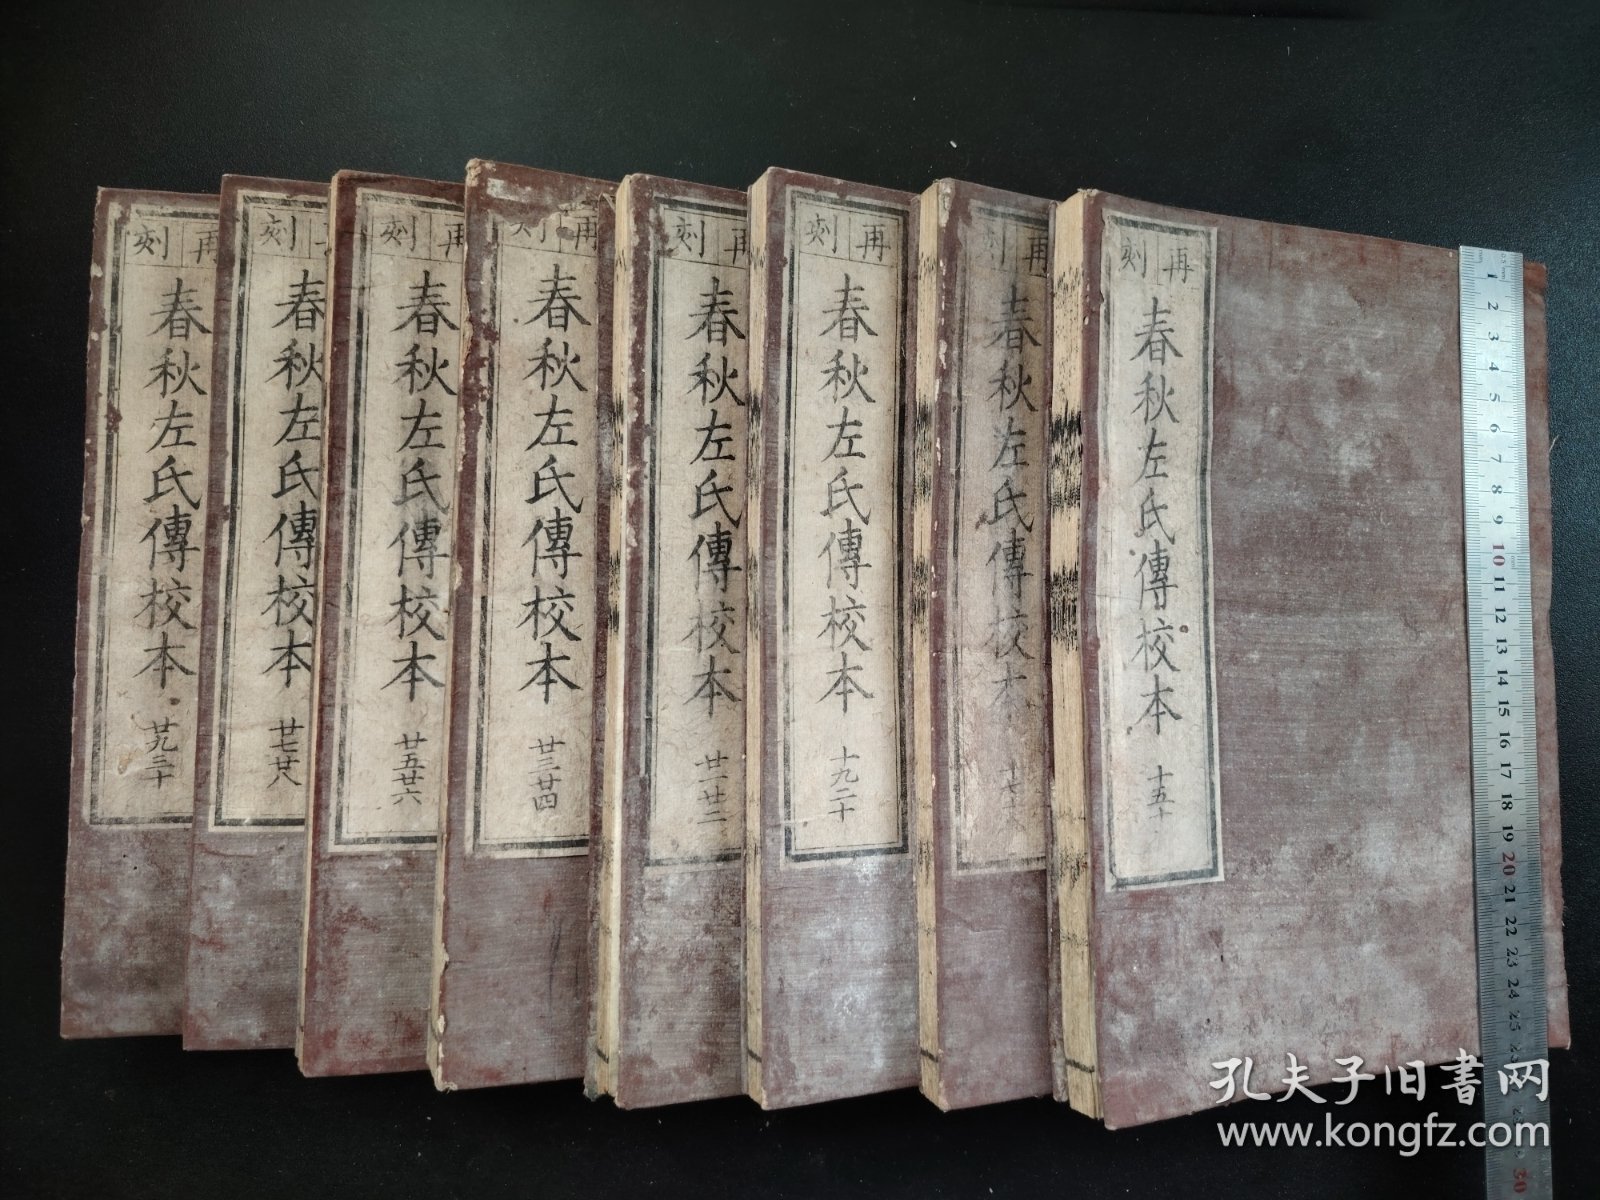 再刻
春秋左氏傳校本
十五十
再刻
春秋左氏傳校本
十七十
再刻
春秋左氏傳校本
十九二十
再刻
春秋左氏傳校本
廿一廿二
再刻
春秋左氏傳校本
廿三廿四
再刻
春秋左氏傳校本
廿五廿六
再刻
春秋左氏傳校本
廿七廿八
再刻
春秋左氏傳校本
廿九三十
0.5mm
1 2 3 4 5 6 7 8 9 10 11 12 13 14 15 16 17 18 19 20 21 22 23 24 25
30
孔夫子旧書网
www.kongfz.com